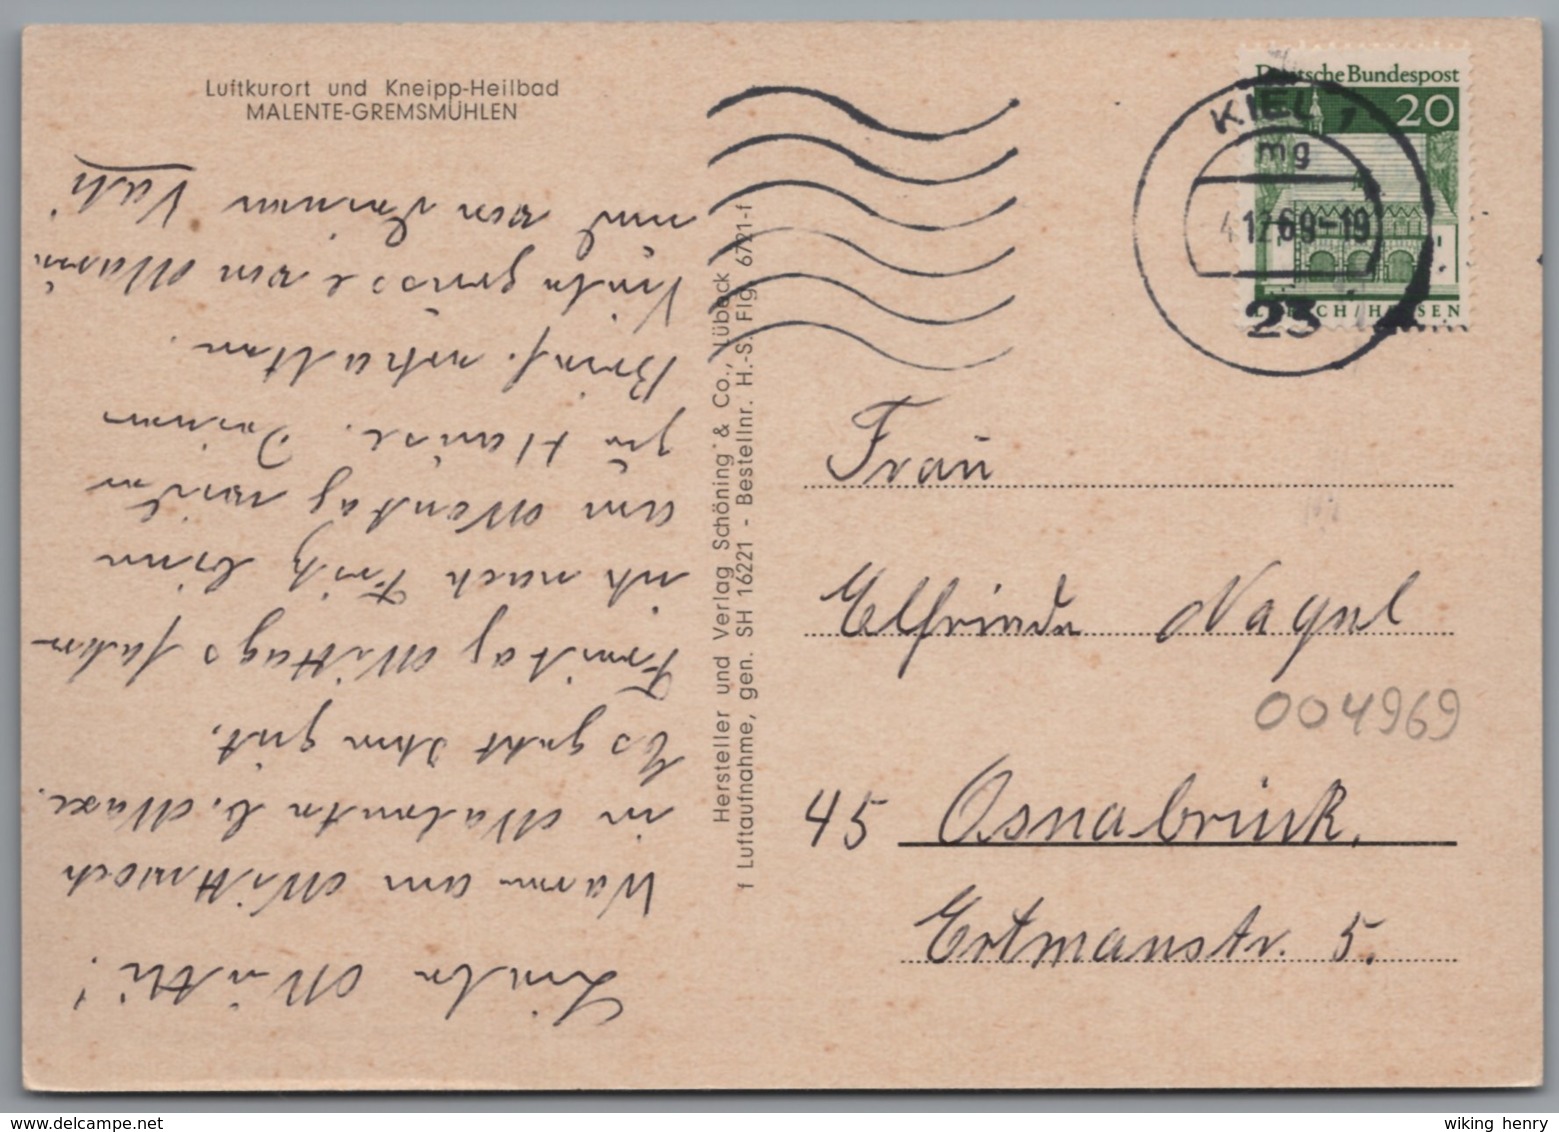 Luftkurort und Kneipp-Heilbad
MALENTE-GREMSMÜHLEN
Liebe Mutti!
Waren am Mittwoch
in Malente b. Maxe.
Es geht ihm gut.
Freitag Mittags fahr
ich nach Fritz binn
am Montag wieder
zu Hause. Deinen
Brief erhalten.
Viele grüsse von
und von Deinem
Hersteller und Verlag Schöning & Co., Lübeck
f Luftaufnahme, gen. SH 16221 - Bestellnr. H.-S. Flg. 6721-f
Deutsche Bundespost
20
LORSCH/HESSEN
KIEL 1
mg
4.12.69-19
23
Frau
Elfriede Nagel
004969
45 Osnabrück,
Ertmanstr. 5.
wiking henry